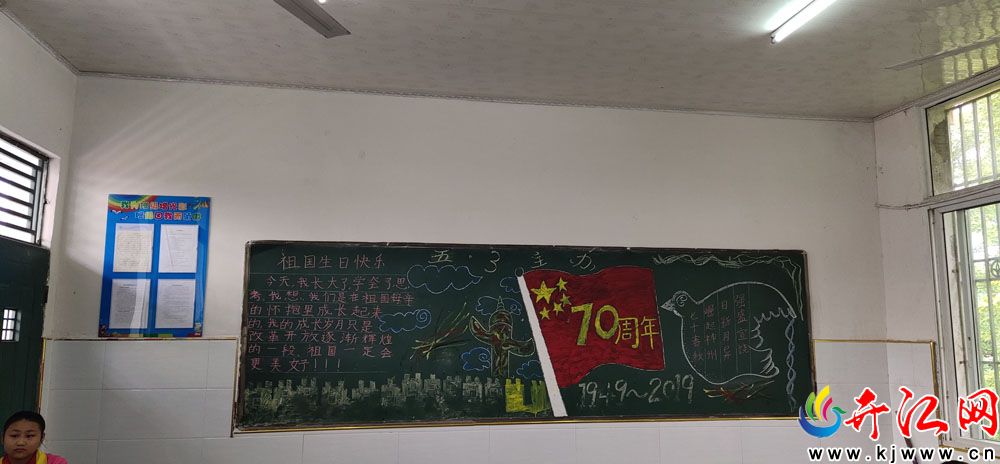 祖国生日快乐
今天,我长大了,学会了思
考,我想,我们是在祖国母亲
的怀抱里成长起来
的,我的成长岁月只是
改革开放逐渐辉煌
的一段,祖国一定会
更美好!!!
五·3主办
70周年
1949~2019
七十春秋
崛起神州
日新月异
开江网
www.kjwww.cn